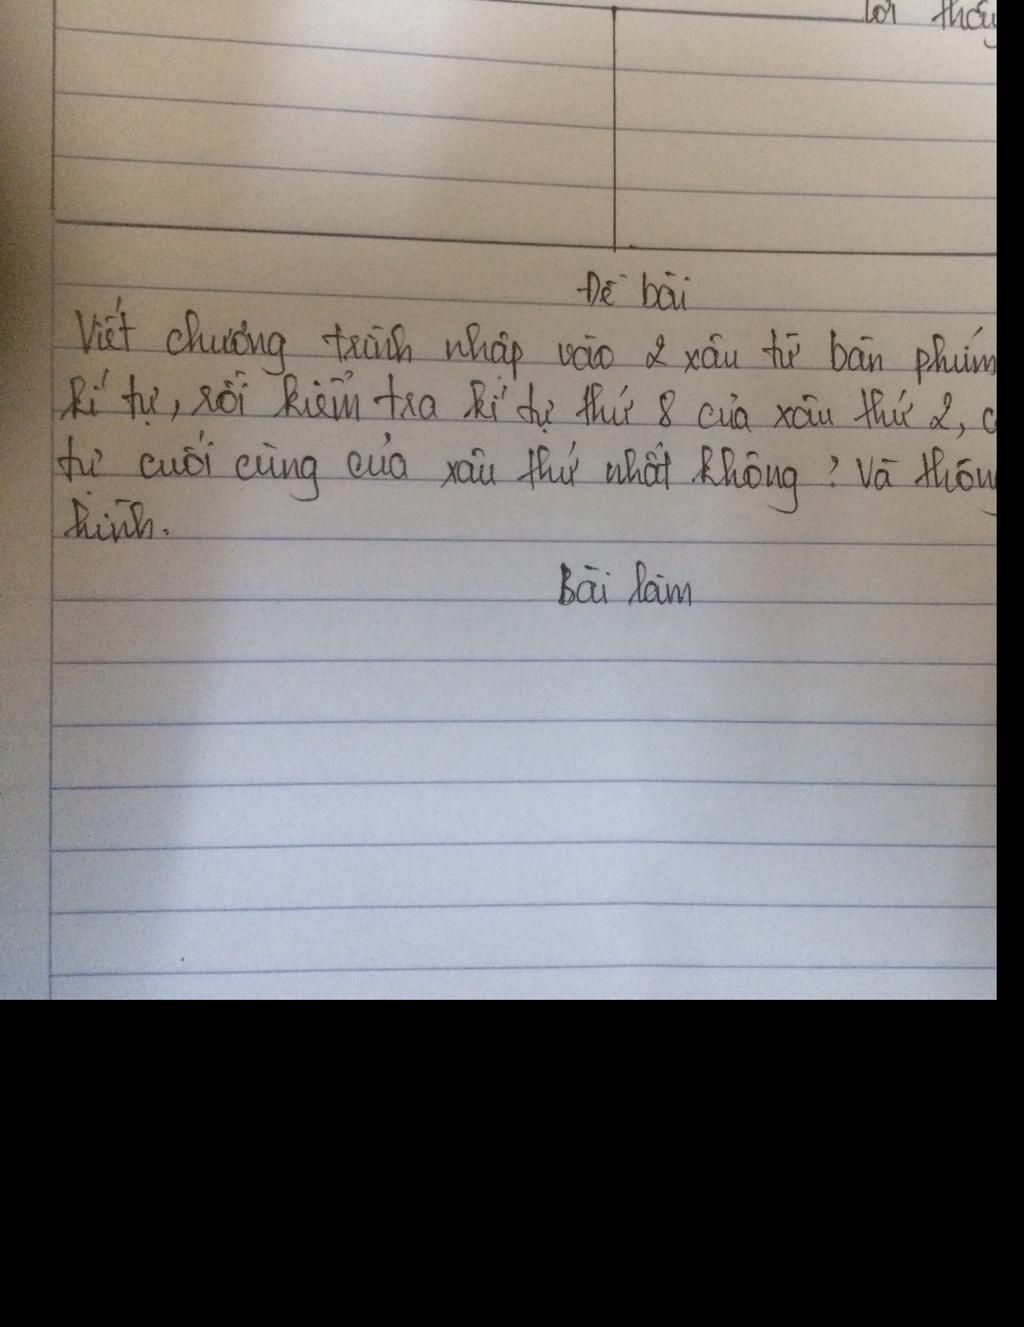 lời thầy
Đề bài
Viết chương trình nhập vào 2 xâu từ bàn phím
kí tự, rồi kiểm tra kí tự thứ 8 của xâu thứ 2, c
tự cuối cùng của xâu thứ nhất không? Và thôn
hình.
Bài làm